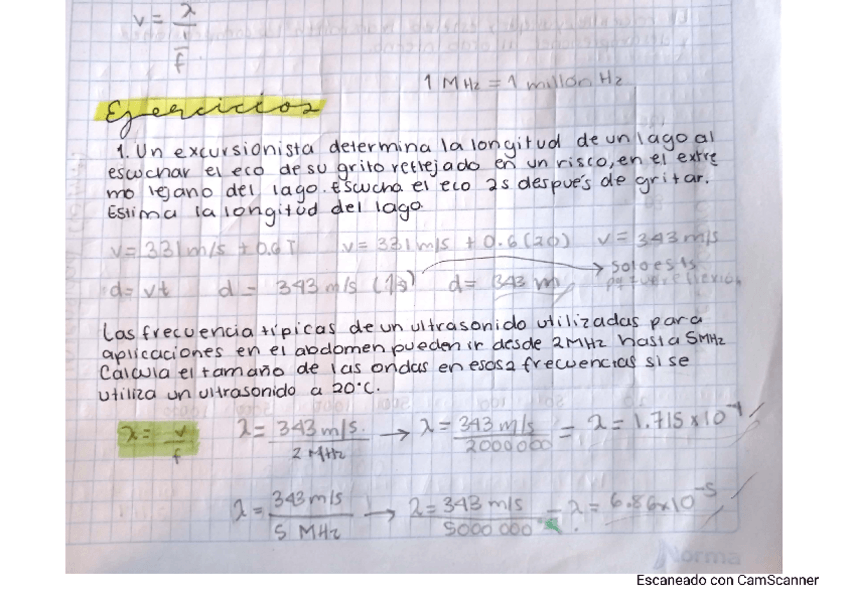 v = λ / 1/f
1 MHz = 1 millon Hz
Ejercicios
1. Un excursionista determina la longitud de un lago al
escuchar el eco de su grito reflejado en un risco, en el extre
mo lejano del lago. Escucha el eco 2s después de gritar.
Estima la longitud del lago
v = 331 m/s + 0.6 T v = 331 m/s + 0.6 (20) v = 343 m/s
solo es 1s
d = vt d = 343 m/s (1s) d = 343 m
Las frecuencia típicas de un ultrasonido utilizadas para
aplicaciones en el abdomen pueden ir desde 2MHz hasta 5MHz
Calcula el tamaño de las ondas en esos 2 frecuencias si se
utiliza un ultrasonido a 20°C.
λ = v/f λ = 343 m/s. / 2 MHz → λ = 343 m/s / 2000000 = λ = 1.715 x 10
λ = 343 m/s / 5 MHz → λ = 343 m/s / 5000 000 = λ = 6.86x10^-5
Norma
Escaneado con CamScanner